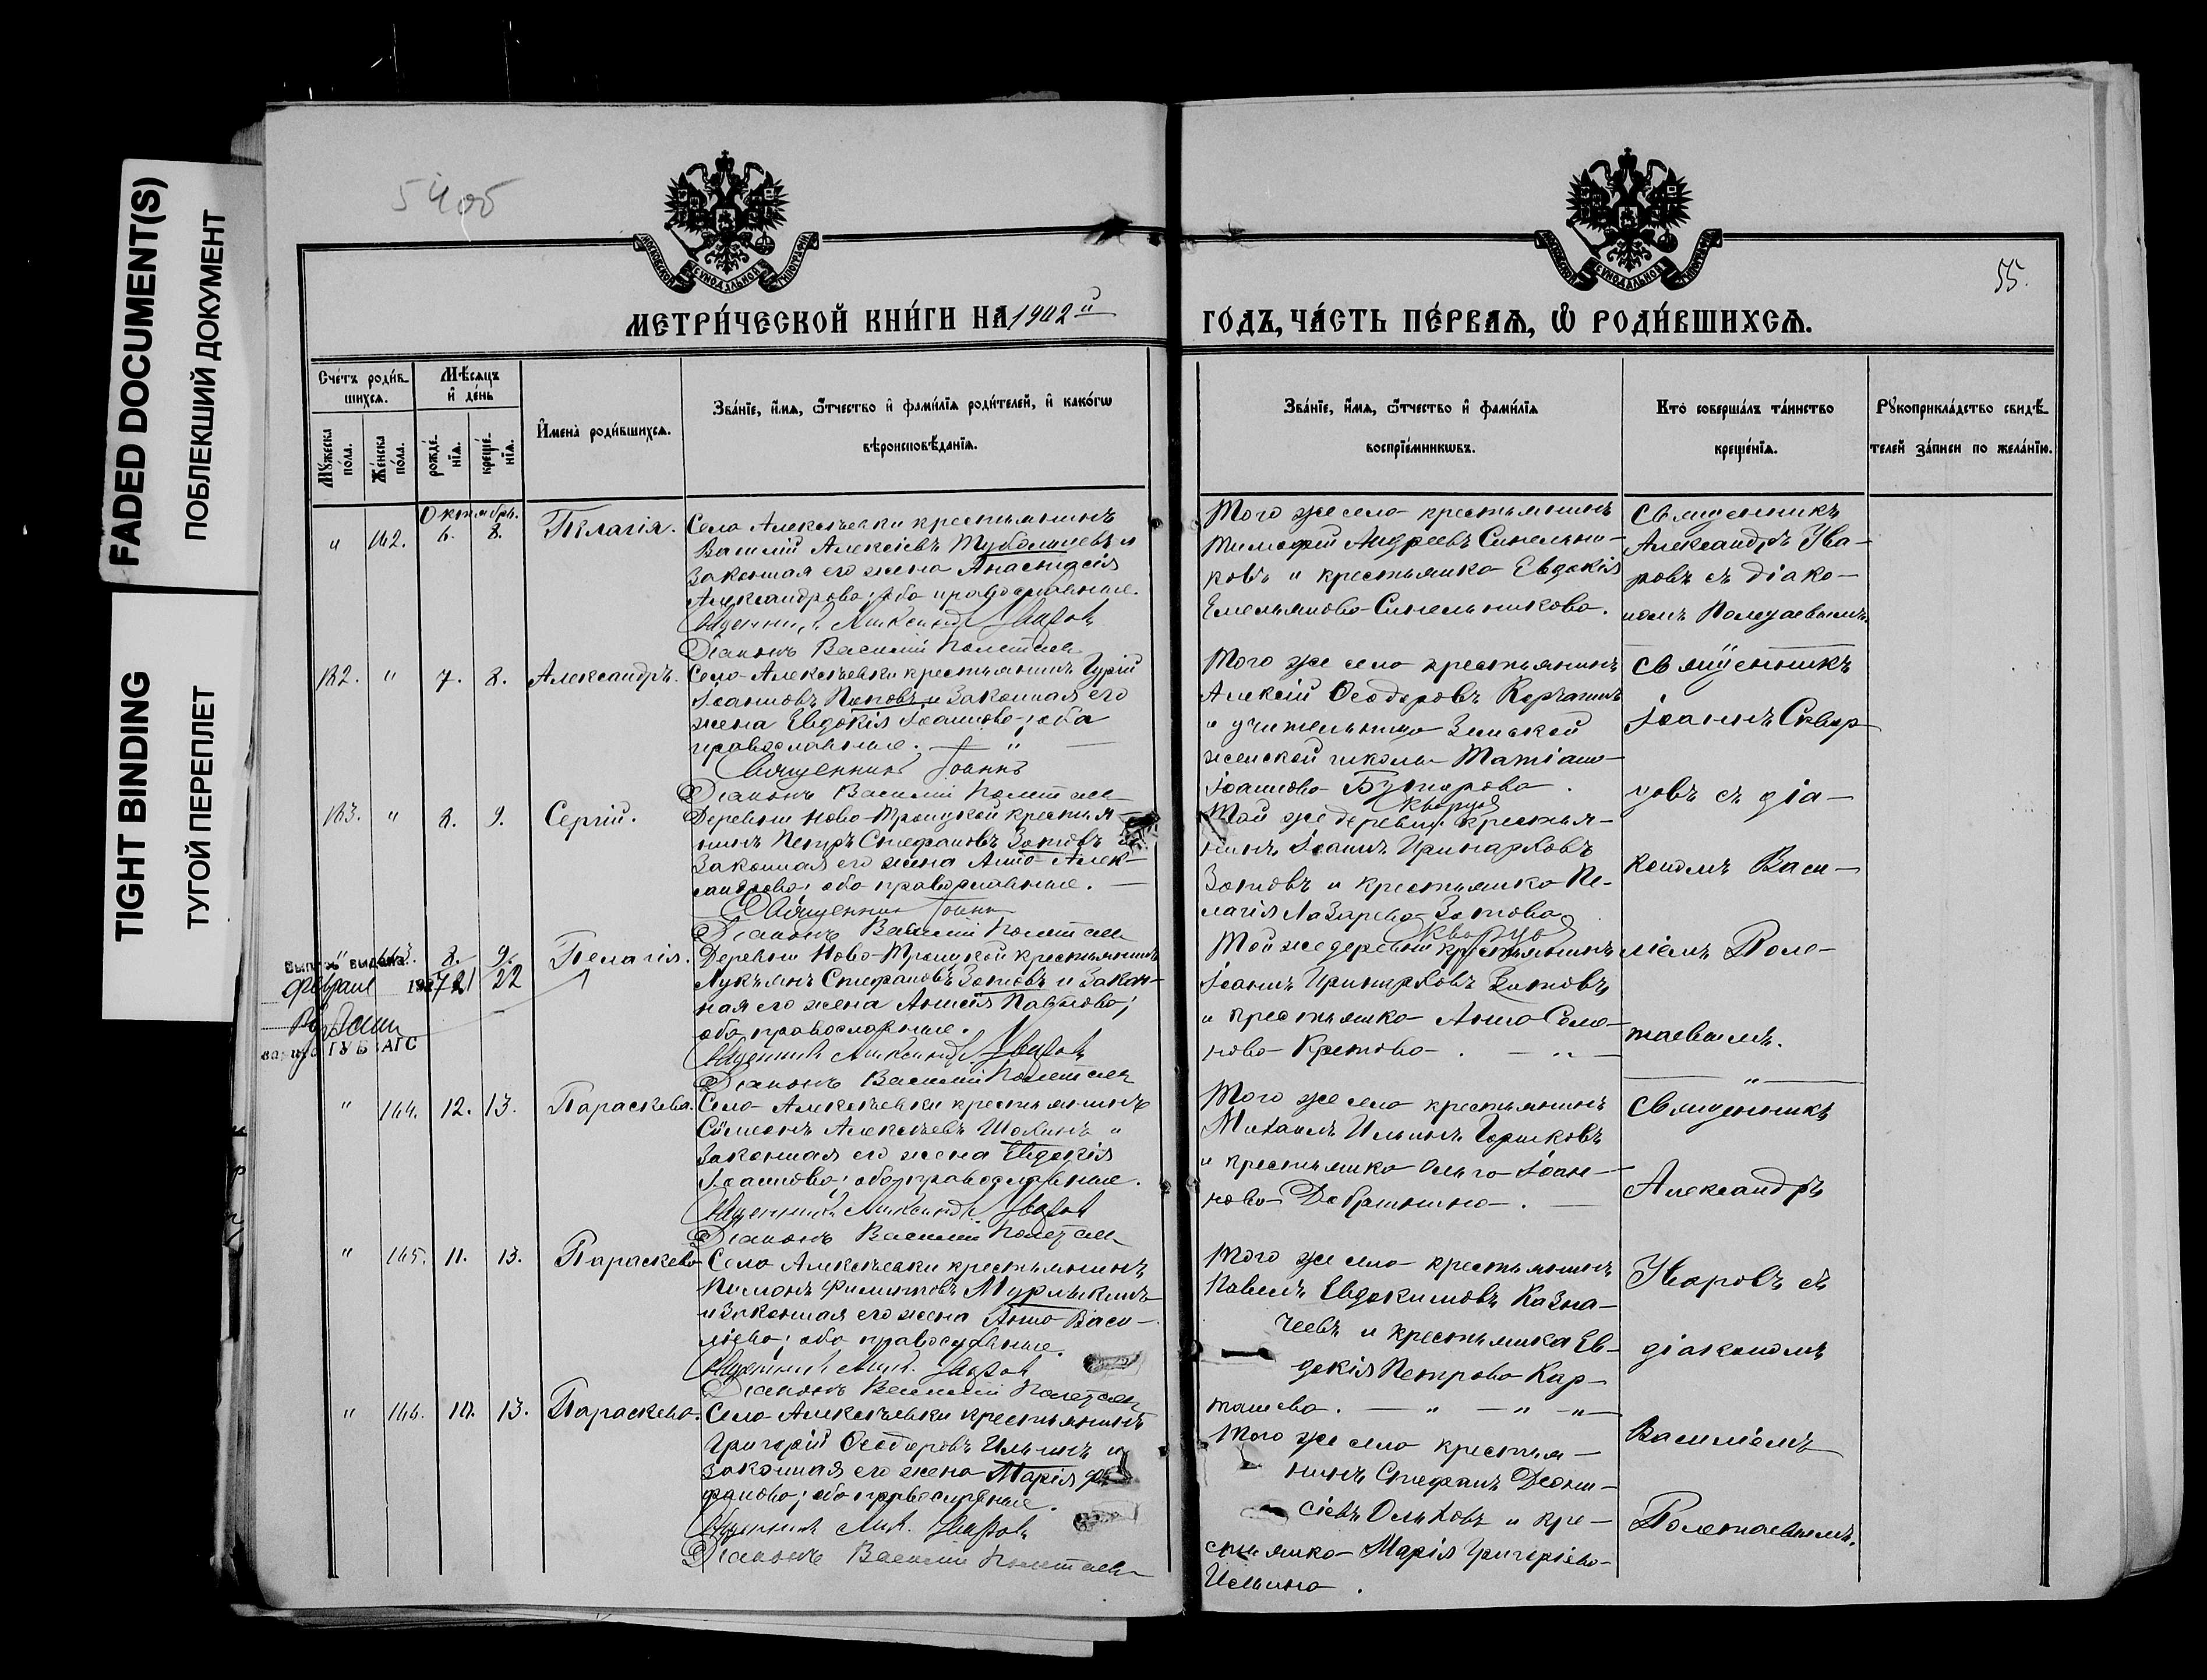 FADED DOCUMENT(S)
ПОБЛЕКШИЙ ДОКУМЕНТ
TIGHT BINDING
ТУГОЙ ПЕРЕПЛЕТ
54об
55.
МЕТРИ́ЧЕСКОЙ КНИ́ГИ НА 1902й
ГО́ДЪ, ЧА́СТЬ ПЕ́РВАѦ, Ѡ҆ РОДИ́ВШИХСѦ.
Сче́тъ роди́в-
шихсѧ.
Мѣ́сѧцъ
и҆ де́нь
Мꙋ́жеска
по́ла.
Же́нска
по́ла.
рожде́-
нїѧ.
креще́-
нїѧ.
И҆мена̀ роди́вшихсѧ.
Зва́нїе, и҆́мѧ, ѻ҆́тчество и҆ фами́лїѧ роди́телей, и҆ како́гѡ
вѣроисповѣ́данїѧ.
Зва́нїе, и҆́мѧ, ѻ҆́тчество и҆ фами́лїѧ
воспрїе́мникѡвъ.
Кто̀ соверша́лъ та́инство
креще́нїѧ.
Рꙋкоприкла́дство свидѣ́-
телей за́писи по жела́нїю.
Октябрь.
" 162. 6. 8. Пелагія.
Села Алексѣевки крестьянинъ
Василій Алексѣевъ и
законная его жена Анастасія
Александрова; оба православные.
Священникъ Александръ Уваровъ
Діаконъ Василій Полетаевъ
Того же села крестьянинъ
Тимофей Андреевъ Синельни-
ковъ и крестьянка Евдокія
Емельянова Синельникова.
Священникъ
Александръ Ува-
ровъ съ діако-
номъ Полетаевымъ.
182. " 7. 8. Александръ.
Села Алексѣевки крестьянинъ Гурій
Іоанновъ Поповъ и законная его
жена Евдокія Іоаннова; оба
православные. — " —
Священникъ Іоаннъ
Діаконъ Василій Полетаевъ
Того же села крестьянинъ
Алексій Ѳеодоровъ Корчагинъ
и учительница Земской
женской школы
Іоаннова
Священникъ
Іоаннъ Сквор-
цовъ съ діа-
кономъ Васи-
ліемъ Поле-
таевымъ.
183. " 8. 9. Сергій.
Деревни Ново-Троицкой крестья-
нинъ Петръ Стефановъ Зотовъ и
законная его жена Анна Алек-
сандрова; оба православные. —
Священникъ Іоаннъ Скворцов
Діаконъ Василій Полетаевъ
Той же деревни крестья-
нинъ Іоаннъ Принарховъ
Зотовъ и крестьянка Пе-
лагія Лазарева Зотова
" 163. 8. 9. Пелагія.
21 22
Выпись выдана
Февраля 1927
ГУБЗАГС
Деревни Ново-Троицкой крестьянинъ
Лукьянъ Стефановъ Зотовъ и закон-
ная его жена Анисія Павлова;
оба православные.
Священникъ Александръ Уваровъ
Діаконъ Василій Полетаевъ
Той же деревни крестьянинъ
Іоаннъ Принарховъ Зотовъ
и крестьянка Анна Семе-
нова Кретова. — " —
" 164. 12. 13. Параскева.
Села Алексѣевки крестьянинъ
Сѵмеонъ Алексѣевъ Шохинъ и
законная его жена Евдокія
Іоаннова; оба православные.
Священникъ Александръ Уваровъ
Діаконъ Василій Полетаевъ
Того же села крестьянинъ
Михаилъ Ильинъ Горшковъ
и крестьянка Ольга Іоан-
нова Добрынина. —
Священникъ
Александръ
Уваровъ съ
діакономъ
Василіемъ
Полетаевымъ.
" 165. 11. 13. Параскева
Села Алексѣевки крестьянинъ
Пименъ Филипповъ Мурлыкинъ
и законная его жена Анна Васи-
ліева; оба православные.
Священникъ Алек. Уваровъ
Діаконъ Василій Полетаевъ
Того же села крестьянинъ
Павелъ Евдокимовъ Казна-
чеевъ и крестьянка Ев-
докія Петрова Кар-
ташева. — " — " — " —
" 166. 10. 13. Параскева.
Села Алексѣевки крестьянинъ
Григорій Ѳеодоровъ Ильинъ и
законная его жена Марія
фанова; оба православные.
Священникъ Алек. Уваровъ
Діаконъ Василій Полетаевъ
Того же села крестья-
нинъ Стефанъ Діони-
сіевъ Ольховъ и кре-
стьянка Марія Григоріева
Ильина.